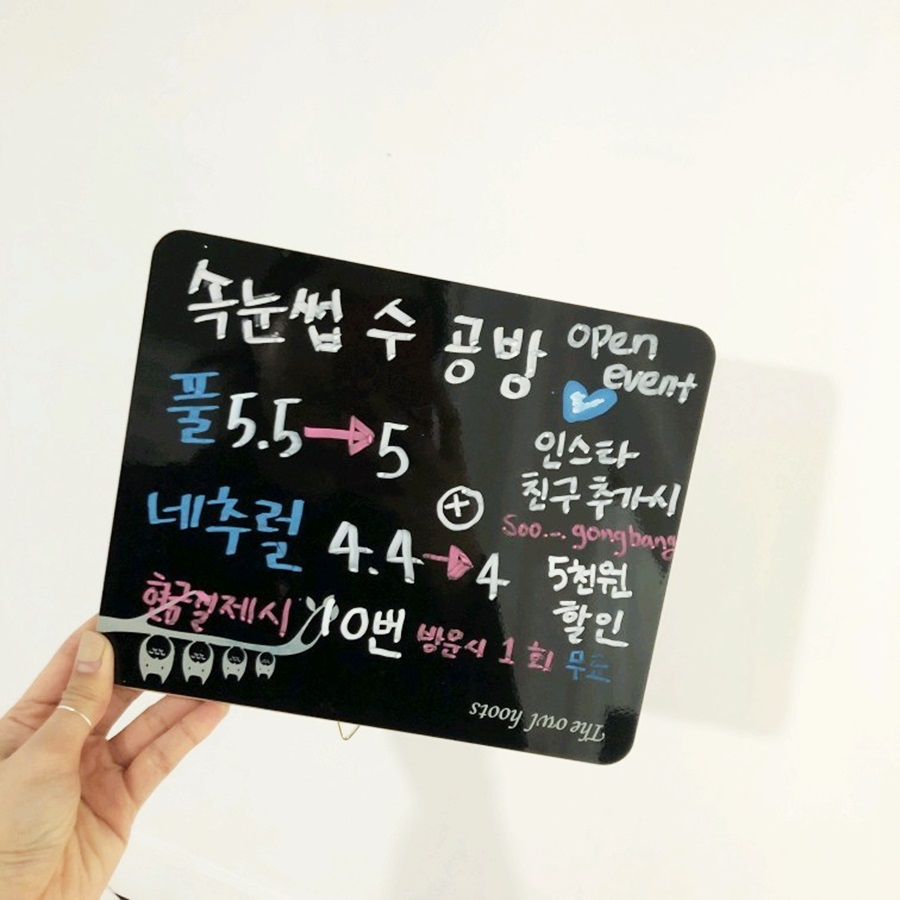 속눈썹 수 공방
open
event
풀 5.5 → 5
네추럴 4.4 → 4
⊕
인스타
친구추가시
Soo... gongbang
5천원
할인
현금결제시 10번 방문시 1회 무료
The owl hoots